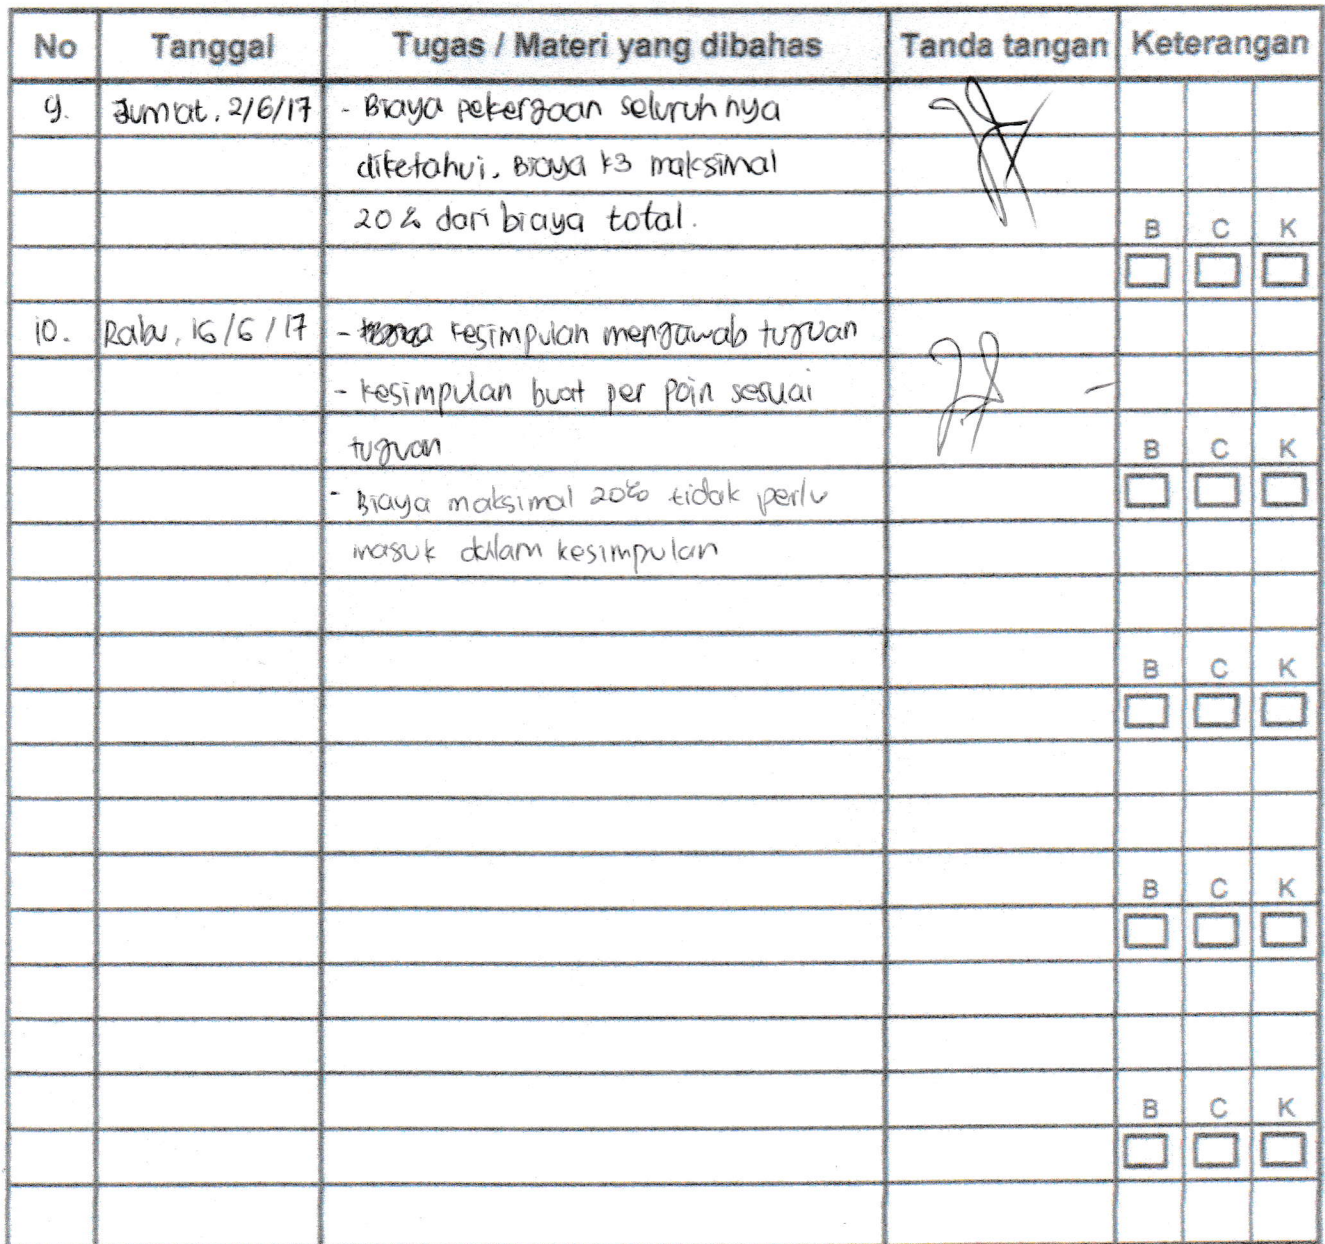 No Tanggal Tugas / Materi yang dibahas Tanda tangan Keterangan
9. Jum'at, 2/6/17 - Biaya pekerjaan seluruhnya
diketahui. Biaya k3 maksimal
20% dari biaya total.
B C K
10. Rabu, 16/6/17 - kesimpulan menjawab tujuan
- kesimpulan buat per poin sesuai
tujuan
B C K
- Biaya maksimal 20% tidak perlu
masuk dalam kesimpulan
B C K
B C K
B C K